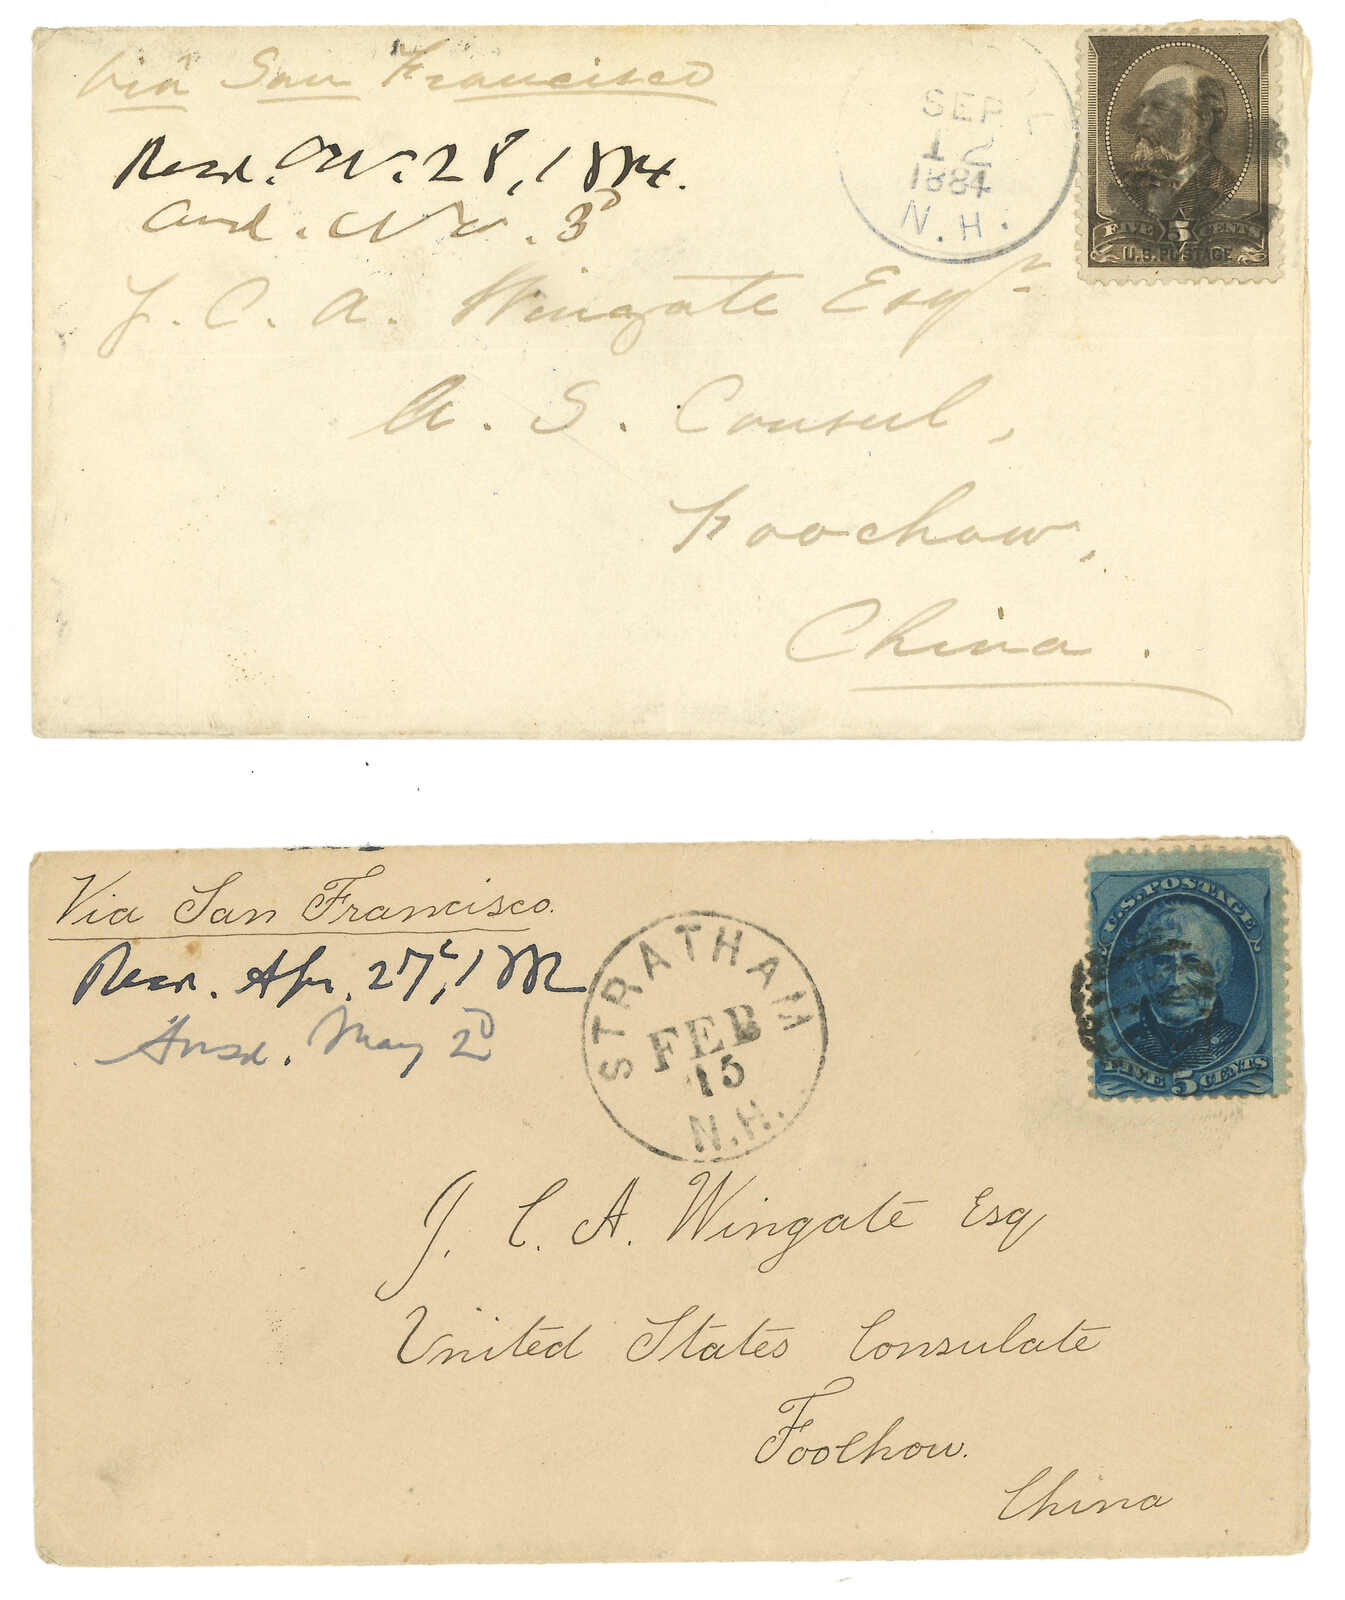 Via San Francisco
Recd. Oct. 28, 1884.
Ansd. Nov. 3d
SEP
12
1884
N.H.
FIVE 5 CENTS
U.S. POSTAGE
J. C. A. Wingate Esqr
U. S. Consul,
Foochow,
China.
Via San Francisco.
Recd. Apr. 27,
Ansd. May 2d
STRATHAM
FEB
15
N.H.
U.S. POSTAGE
FIVE 5 CENTS
J. C. A. Wingate Esq
United States Consulate
Foochow.
China